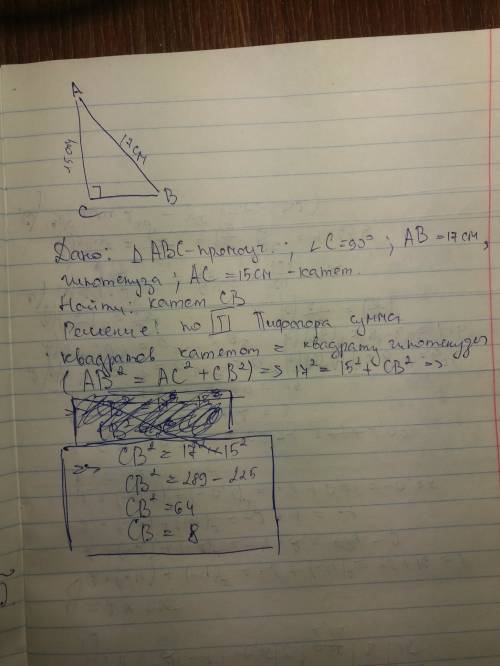 A
15см
17см
C
B
Дано: △ ABC-прямоуг.; ∠C=90°; AB=17см,
гипотенуза; AC=15см-катет.
Найти: катет CB
Решение: по Т Пифагора сумма
квадратов катетот = квадрату гипотенузы
(AB² = AC² + CB²) => 17² = 15² + CB² =>
=> CB² = 17² - 15²
CB² = 289 - 225
CB² = 64
CB = 8